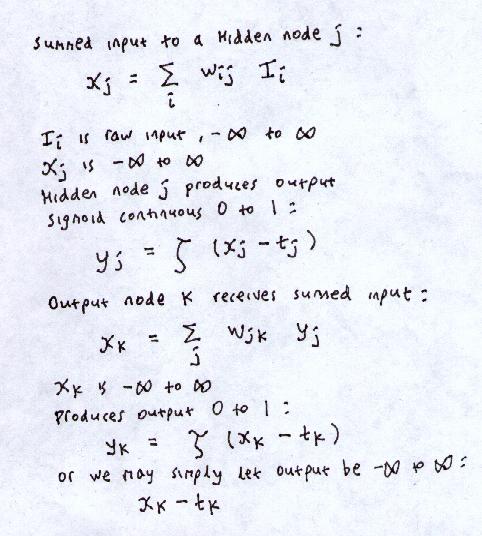 Summed input to a Hidden node j :
xj = Σ wij Ii
i
Ii is raw input , -∞ to ∞
xj is -∞ to ∞
Hidden node j produces output
sigmoid continuous 0 to 1 :
yj = ζ (xj - tj)
Output node K receives summed input :
xk = Σ wjk yj
j
xk is -∞ to ∞
Produces output 0 to 1 :
yk = ζ (xk - tk)
or we may simply let output be -∞ to ∞ :
xk - tk